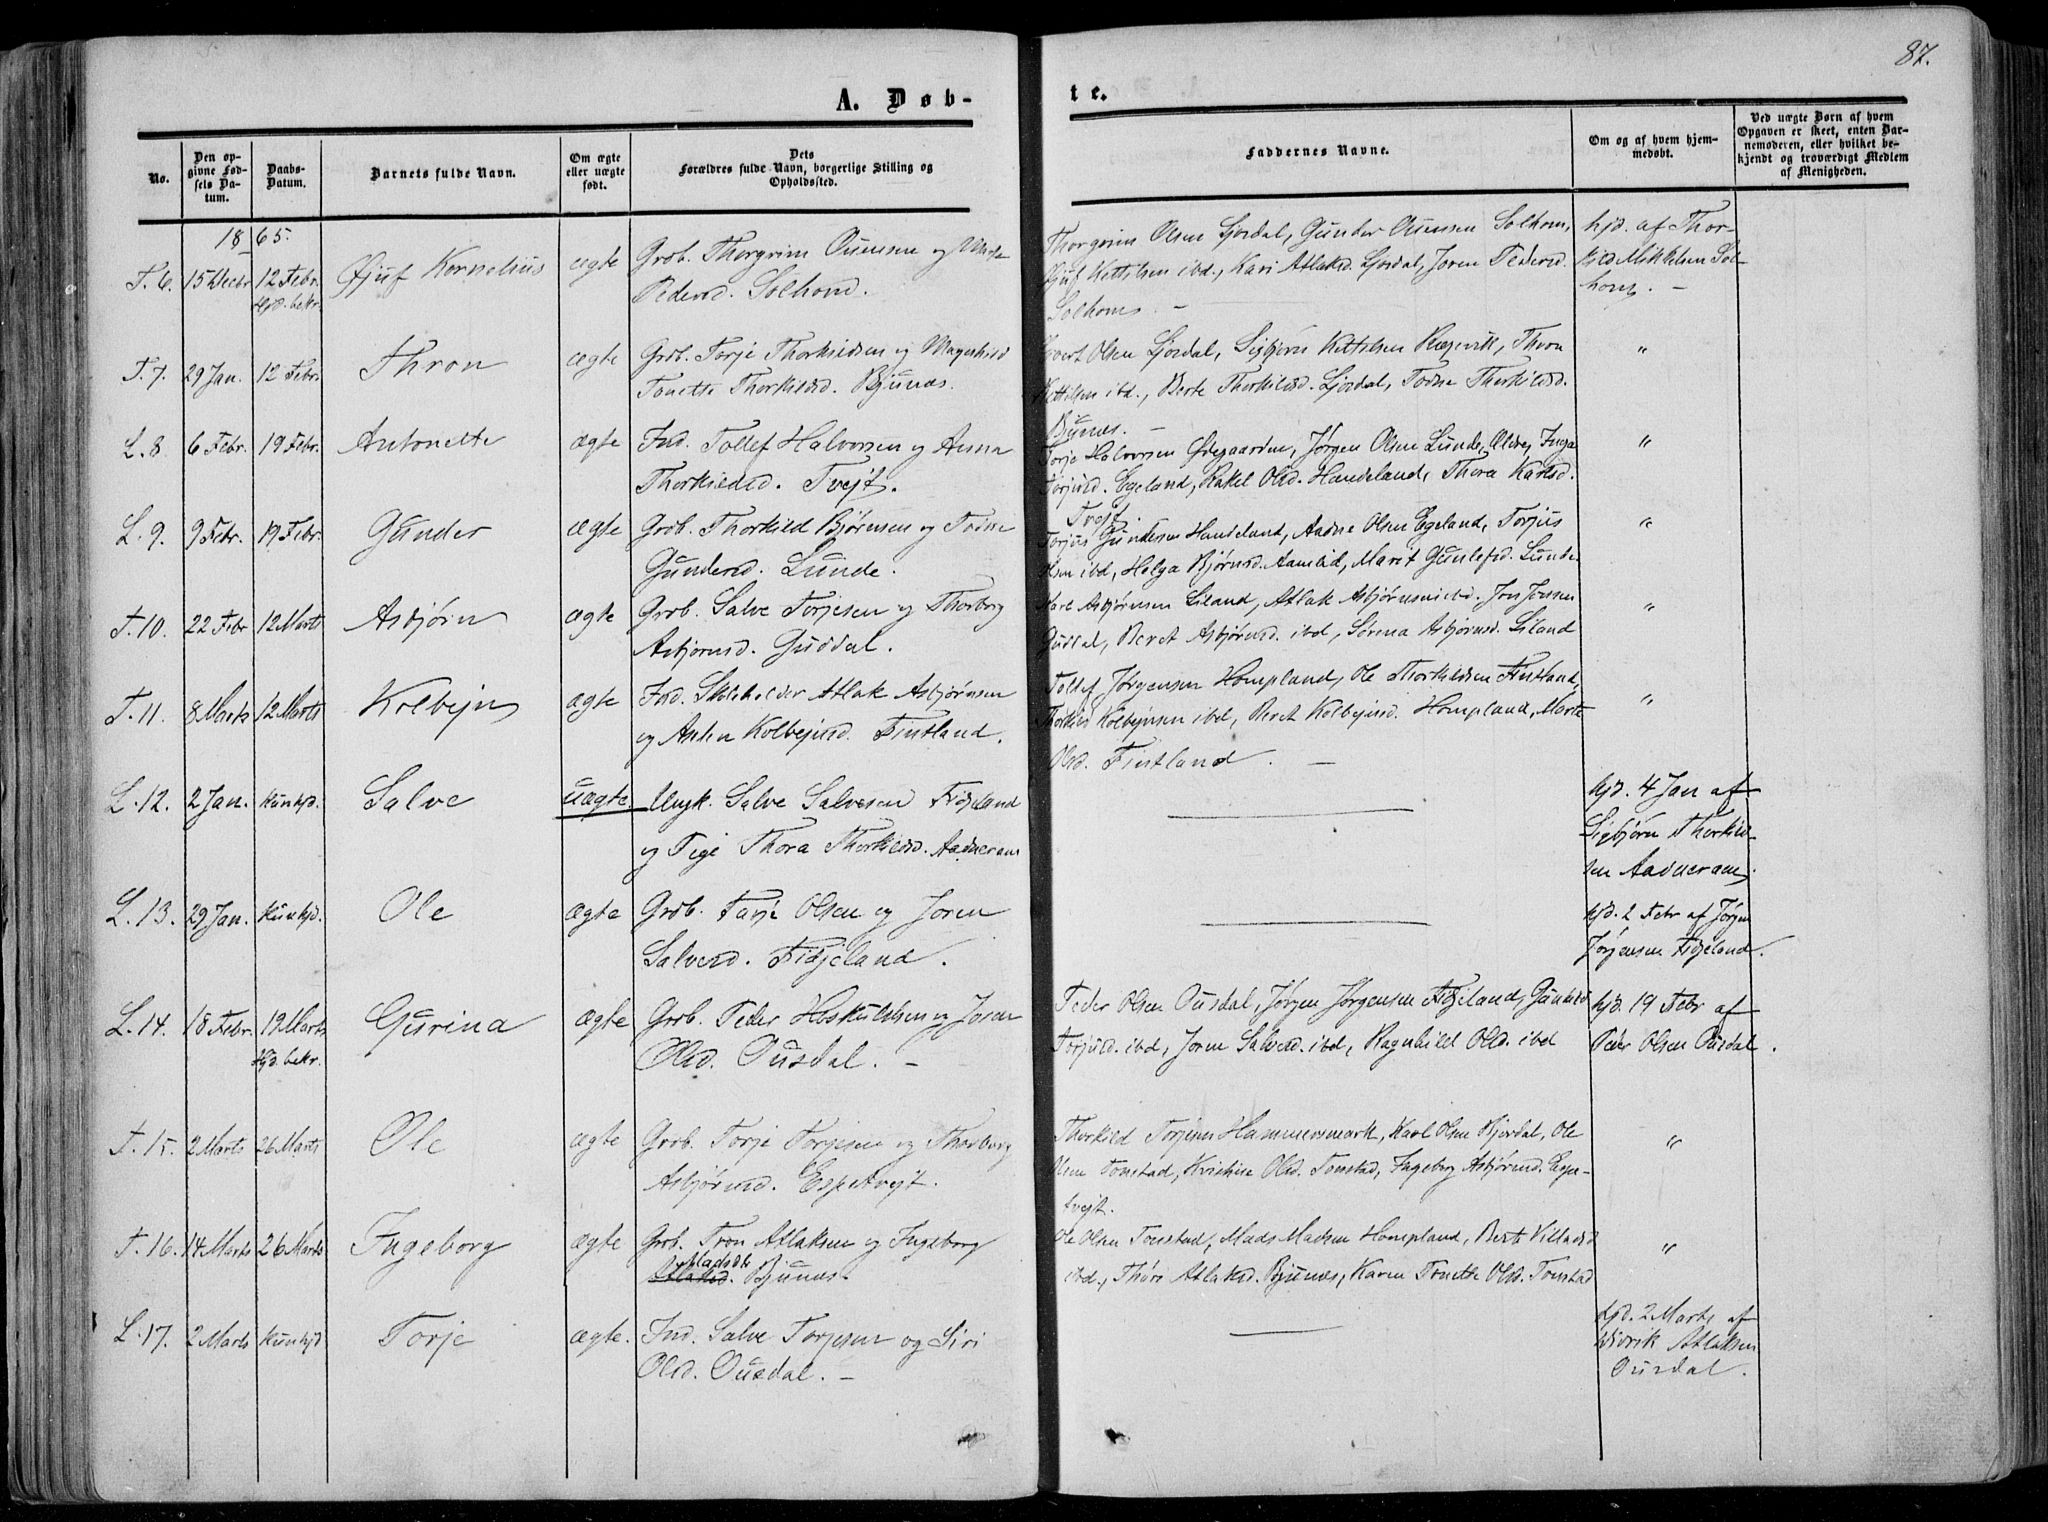 87.
A. Døb-
te.
No.
Den op-
givne Fød-
sels Da-
tum.
Daabs-
Datum.
Barnets fulde Navn.
Om ægte
eller uægte
født.
Dets
Forældres fulde Navn, borgerlige Stilling og
Opholdssted.
Faddernes Navne.
Om og af hvem hjem-
medøbt.
Ved uægte Børn af hvem
Opgaven er skeet, enten Bar-
nemoderen, eller hvilket be-
kjendt og troværdigt Medlem
af Menigheden.
1865.
T. 6. 15 Decbr 12 Febr. Kornelius ægte Grb. Thorgrim Ounsen og
Hjd. bekr. Pedersd. Solhom.
Thorgrim Olsen Ljosdal, Gunder Ounsen Solhom,
Kettilsen ibd., Kari Atlaksd. Ljosdal, Joren Pedersd.
Solhom. –
hjd. af Thor-
kild Mikkelsen Sol-
hom. –
T. 7. 29 Jan. 12 Febr. Thron ægte Grb. Torje Thorkildsen og Magnhild
Tonette Thorkildsd. Bjunes.
Sivert Olsen Ljosdal, Sigbjørn Kettilsen Ræsevik, Thron
Kettilsen ibd., Berte Thorkildsd. Ljosdal, Todne Thorkildsd.
Bjunes. –
"
L. 8. 6 Febr. 19 Febr. Antonette ægte Ind. Tollef Halvorsen og Anna
Thorkildsd. Tvejt.
Torje Halvorsen Ødegaarden, Jørgen Olsen Lunde, Inga
Torjusd. Egeland, Rakel Olsd. Handeland, Thora Karlsd.
Tvejt.
"
L. 9. 9 Febr. 19 Febr. Gunder ægte Grb. Thorkild Bjørnsen og Todne
Gundersd. Lunde.
Torjus Gundersen Handeland, Aadne Olsen Egeland, Torjus
Olsen ibd, Helga Bjørnsd. Aamlid, Marit Gunlefsd. Lunde
"
T. 10. 22 Febr 12 Marts Asbjørn ægte Grb. Salve Torjesen og Thorborg
Asbjørnsd. Guddal.
Karl Asbjørnsen Liland, Atlak Asbjørnsen ibd. Jon Jonsen
Guddal, Beret Asbjørnsd. ibd, Sørina Asbjørnsd. Liland
"
T. 11. 8 Marts 12 Marts Kolbejn ægte Ind. Skoleholder Atlak Asbjørnsen
og Kolbejnsd. Fintland.
Tollef Jørgensen Hompland, Ole Thorkildsen Fintland,
Thorkild Kolbejnsen ibd, Beret Kolbejnsd. Hompland, Marte
Olsd. Fintland. –
"
L. 12. 2 Jan. kun hjd. Salve uægte Ungk. Salve Salvesen Fidjeland
og Pige Thora Thorkildsd. Aadneram
hjd. 4 Jan af
Sigbjørn Thorkild-
sen Aadneram.
L. 13. 29 Jan. Kun hjd. Ole ægte Grb. Tarje Olsen og Joren
Salvesd. Fidjeland.
hjd. 2 Febr af Jørgen
Jørgensen Fidjeland.
L. 14. 18 Febr. 12 Marts Gurina ægte Grb. Peder Hoskuldsen og Joren
Hjd. bekr. Olsd. Ousdal. –
Peder Olsen Ousdal, Jørgen Jørgensen Fidjeland, Gunhild
Torjusd. ibd, Joren Salvesd. ibd, Ragnhild Olsd. ibd
hjd. 19 Febr af
Peder Olsen Ousdal.
T. 15. 2 Marts 26 Marts Ole ægte Grb. Torje Torjesen og Thorborg
Asbjørnsd. Espetvejt.
Thorkild Torjesen Hammersmark, Karl Olsen Bjordal, Ole
Olsen Tonstad, Kristine Olsd. Tonstad, Ingeborg Asbjørnsd. Espe-
tvejt.
"
T. 16. 14 Marts 26 Marts Ingeborg ægte Grb. Tron Atlaksen og Ingeborg
Madsdtr
Atlaksd. Bjunes.
Ole Olsen Tonstad, Mads Madsen Hompland, Berte Villadsd
ibd., Thore Atlaksd. Bjunes, Karen Tonette Olsd. Tonstad
"
L. 17. 2 Marts kun hjd Torje ægte. Ind. Salve Torjesen og Siri
Olsd. Ousdal. –
hjd. 2 Marts af
Didrik Atlaksen
Ousdal.